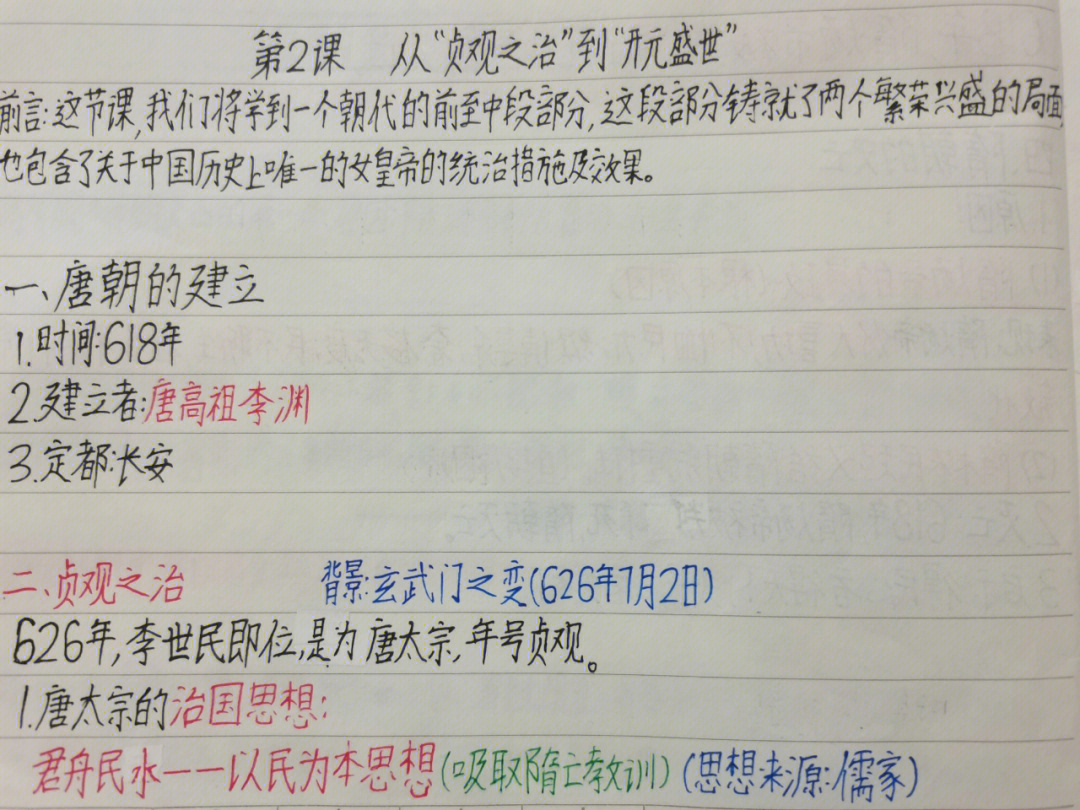 第2课 从“贞观之治”到“开元盛世”
前言:这节课,我们将学到一个朝代的前至中段部分,这段部分铸就了两个繁荣兴盛的局面
也包含了关于中国历史上唯一的女皇帝的统治措施及效果。
一、唐朝的建立
1.时间:618年
2.建立者:唐高祖李渊
3.定都:长安
二、贞观之治 背景:玄武门之变(626年7月2日)
626年,李世民即位,是为唐太宗,年号贞观。
1.唐太宗的治国思想:
君舟民水——以民为本思想(吸取隋亡教训)(思想来源:儒家)